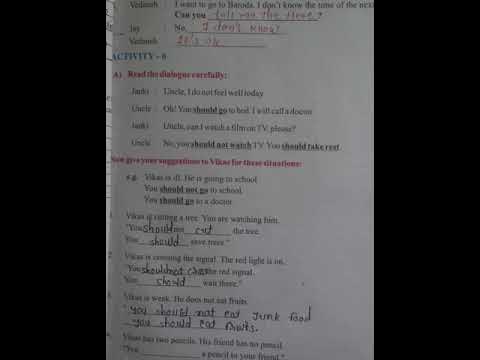 Vedansh : I want to go to Baroda. I don't know the time of the next
Can you tell me the time ?
Jay : No, I don't know.
Vedansh : It's ok
ACTIVITY - 6
A) Read the dialogue carefully:
Janki : Uncle, I do not feel well today
Uncle : Oh! You should go to bed. I will call a doctor.
Janki : Uncle, can I watch a film on TV, please?
Uncle : No, you should not watch TV. You should take rest.
Now give your suggestions to Vikas for these situations:
e.g. Vikas is ill. He is going to school.
You should not go to school.
You should go to a doctor.
1. Vikas is cutting a tree. You are watching him.
"You should not cut the tree.
You should save trees."
2. Vikas is crossing the signal. The red light is on.
"You should not cross the red signal.
You should wait there."
3. Vikas is weak. He does not eat fruits.
"You should not eat Junk food
You should eat fruits.
Vikas has two pencils. His friend has no pencil.
"You a pencil to your friend."